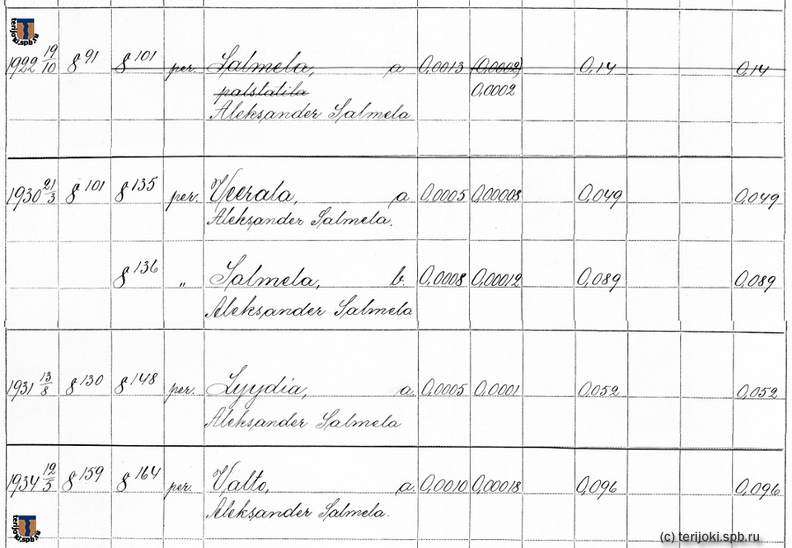 terijoki.spb.ru
1922 19/10 § 91 § 101 per. Salmela, a 0,0013 (0,0002) 0,14 0,14
palstatila 0,0002
Aleksander Salmela
1930 21/3 § 101 § 135 per. Veerala, a 0,0005 0,00008 0,049 0,049
Aleksander Salmela.
§ 136 „ Salmela, b. 0,0008 0,00012 0,089 0,089
Aleksander Salmela
1931 13/8 § 130 § 148 per. Lyydia, a. 0,0005 0,0001 0,052 0,052
Aleksander Salmela
1934 12/5 § 159 § 164 per. Valto, a. 0,0010 0,00018 0,096 0,096
Aleksander Salmela.
terijoki.spb.ru
(c) terijoki.spb.ru